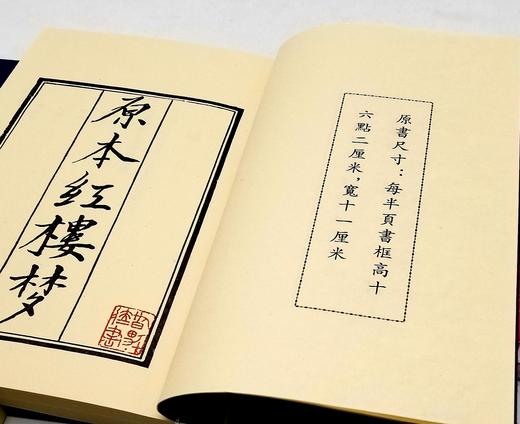 原本红樓梦
原書尺寸：每半頁書框高十
六點二厘米，寬十一厘米